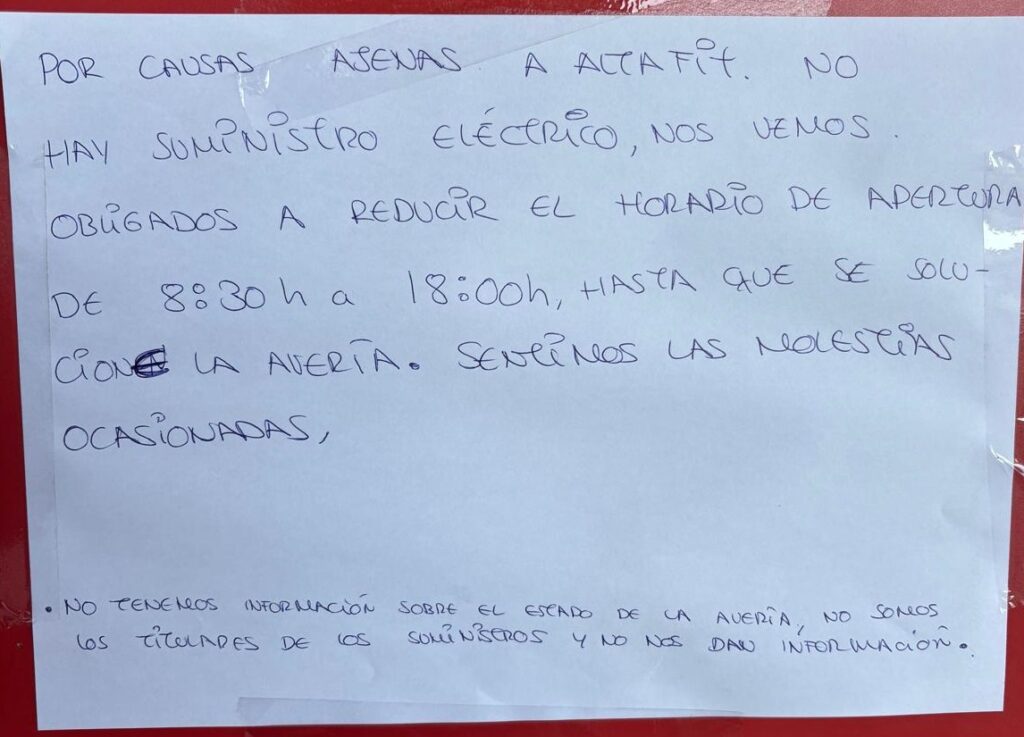 POR CAUSAS AJENAS A ALTAFIT. NO
HAY SUMINISTRO ELÉCTRICO, NOS VEMOS.
OBLIGADOS A REDUCIR EL HORARIO DE APERTURA
DE 8:30 h a 18:00h, HASTA QUE SE SOLU-
CIONE LA AVERÍA. SENTIMOS LAS MOLESTIAS
OCASIONADAS,
. NO TENEMOS INFORMACIÓN SOBRE EL ESTADO DE LA AVERÍA, NO SOMOS
LOS TITULADES DE LOS SUMINISTROS Y NO NOS DAN INFORMACIÓN.